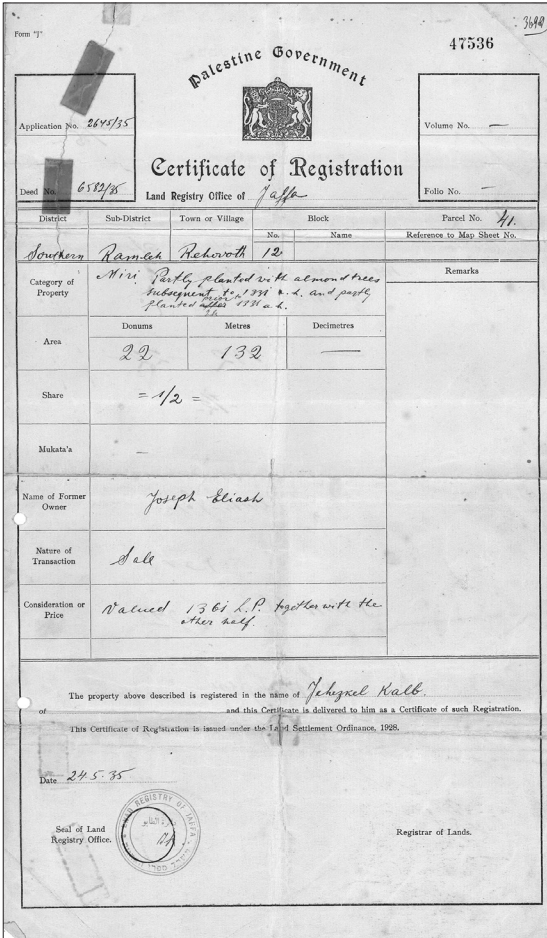 Form "J"
3692
47536
Palestine Government
Application No. 2645/35
Volume No. —
Certificate of Registration
Deed No. 6582/35
Land Registry Office of Jaffa
Folio No. —
District Sub-District Town or Village Block Parcel No. 41.
No. Name Reference to Map Sheet No.
Southern Ramleh Rehovoth 12
Category of Property
Miri. Partly planted with almond trees
subsequent to 1331 a.h. and partly
planted prior 1331 a.h.
Remarks
Donums Metres Decimetres
Area 22 132 —
Share = 1/2 =
Mukata'a —
Name of Former
Owner
Joseph Eliash
Nature of
Transaction
Sale
Consideration or
Price
Valued L.P. together with the
other half.
The property above described is registered in the name of Jehezkel Kalb.
of and this Certificate is delivered to him as a Certificate of such Registration.
This Certificate of Registration is issued under the Land Settlement Ordinance, 1928.
Date 24.5.35
Seal of Land
Registry Office.
LAND REGISTRY OF JAFFA
Registrar of Lands.